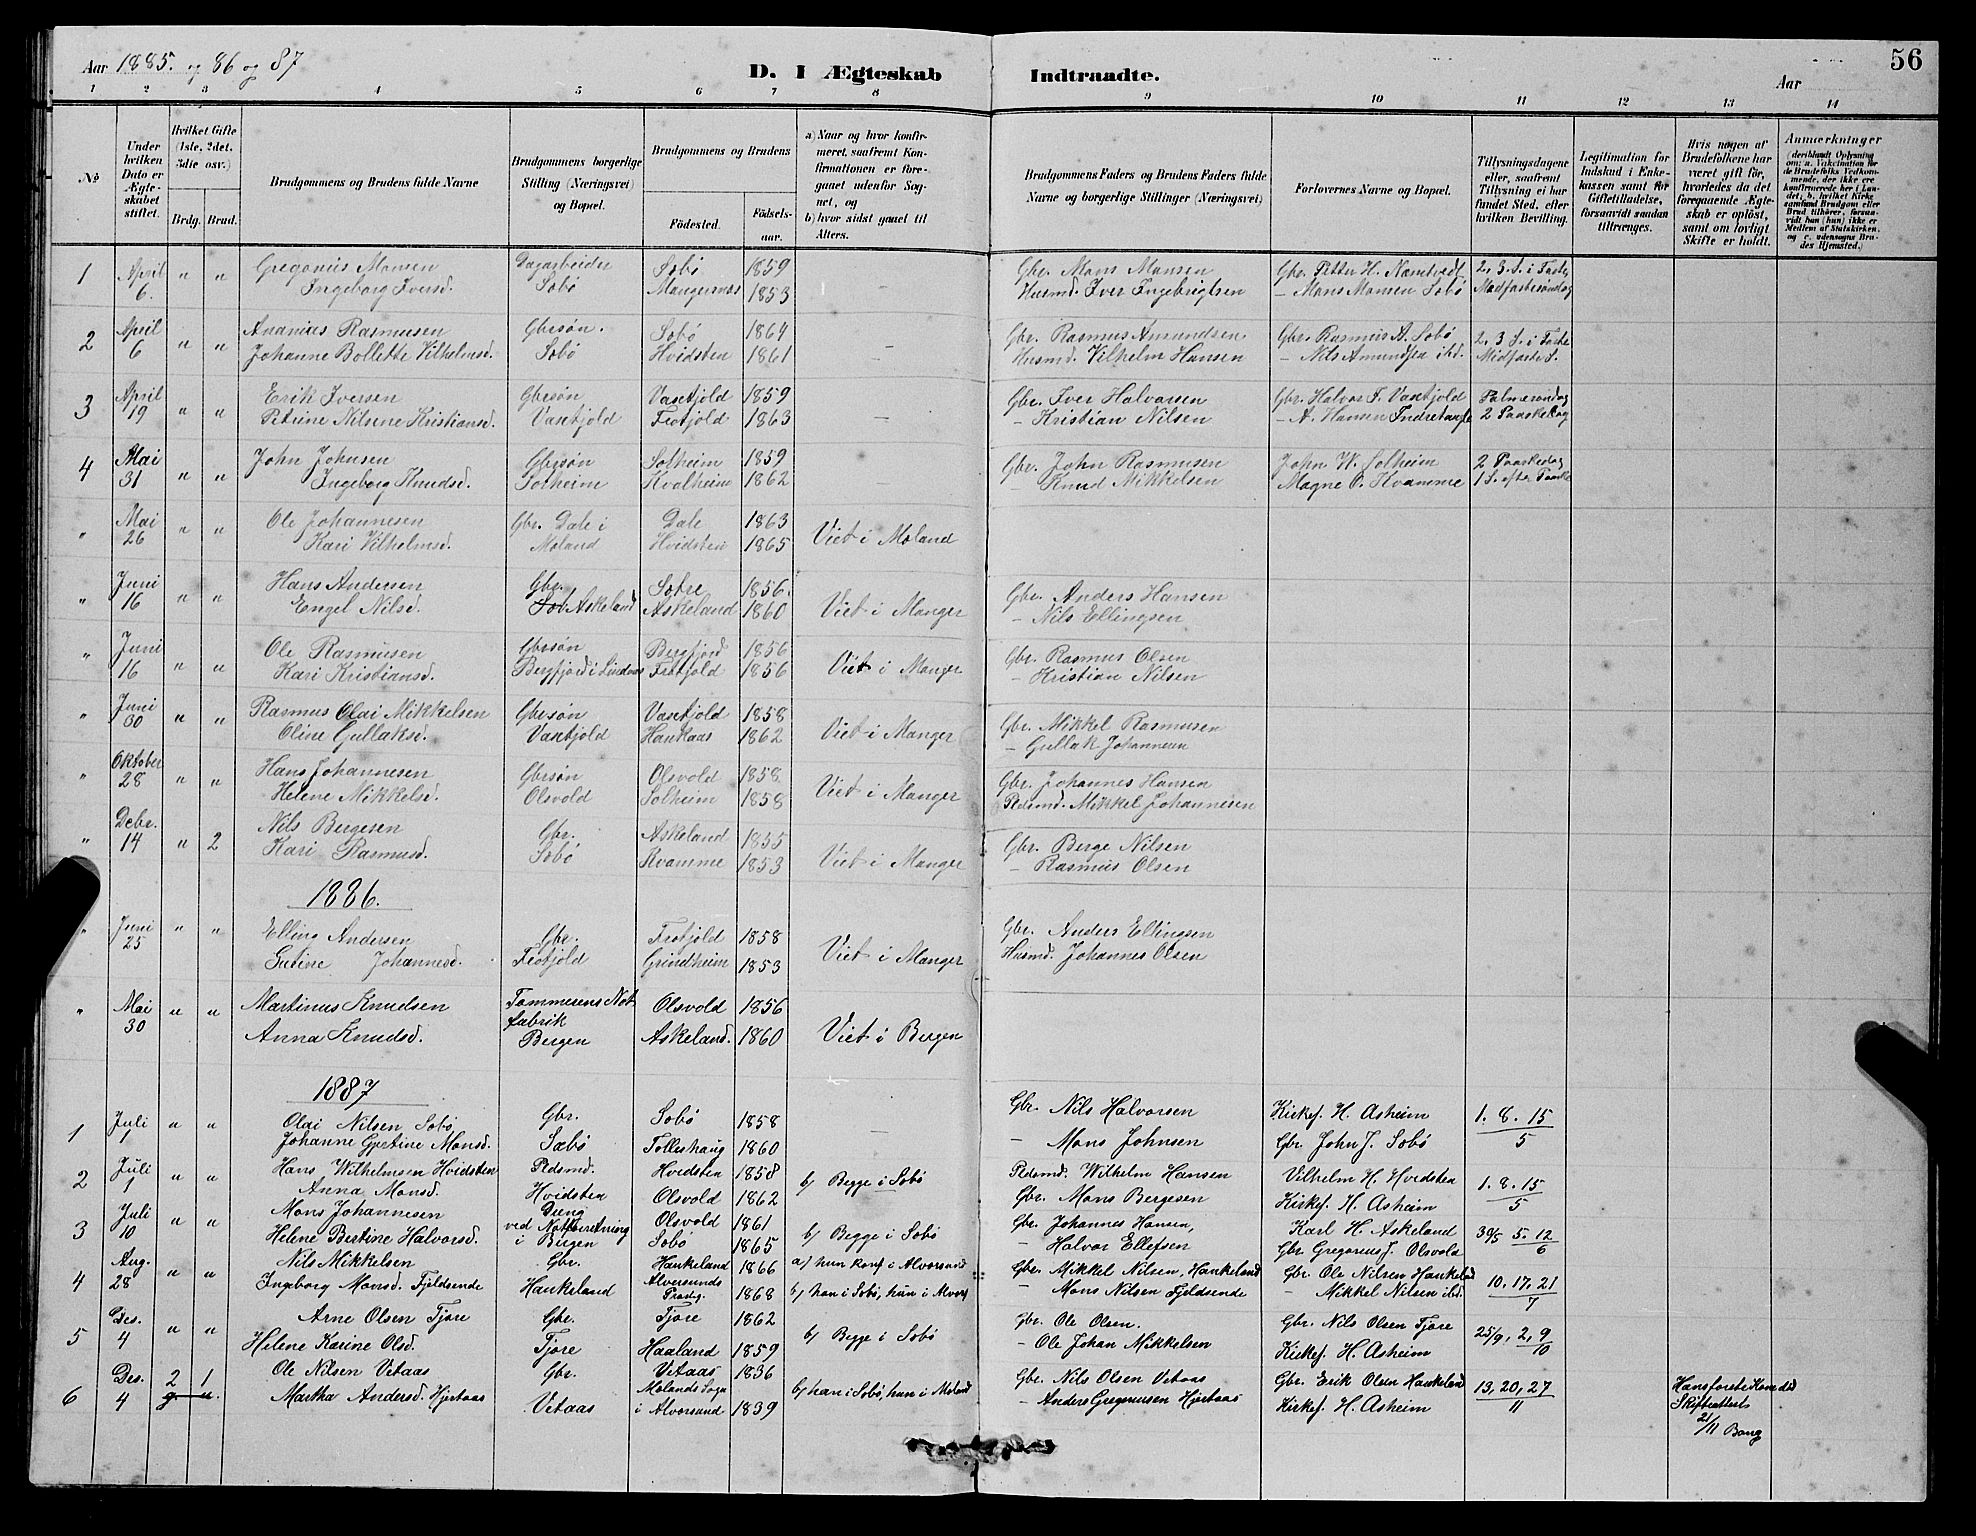 Aar 1885. og 86 og 87
D. I Ægteskab Indtraadte.
Aar
56
1 2 3 4 5 6 7 8 9 10 11 12 13 14
No
Under hvilken Dato er Ægteskabet stiftet.
Hvilket Gifte (1ste, 2det, 3die osv.)
Brdg. Brud.
Brudgommens og Brudens fulde Navne
Brudgommens borgerlige Stilling (Næringsvei) og Bopæl.
Brudgommens og Brudens
Fødested.
Fødselsaar.
a) Naar og hvor konfirmeret, saafremt Konfirmationen er foregaaet udenfor Sognet, og
b) hvor sidst gaaet til Alters.
Brudgommens Faders og Brudens Faders fulde Navne og borgerlige Stillinger (Næringsvei)
Forlovernes Navne og Bopæl.
Tillysningsdagene eller, saafremt Tillysning ei har fundet Sted, efter hvilken Bevilling.
Legitimation for Indskud i Enkekassen samt for Giftetilladelse, forsaavidt saadan tiltrænges.
Hvis nogen af Brudefolkene har været gift før, hvorledes da det foregaaende Ægteskab er opløst, samt om lovligt Skifte er holdt.
Anmærkninger
(deriblandt Oplysning om: a. Vakcination for de Brudefolks Vedkommende, der ikke ere konfirmerede her i Landet, b. hvilket Kirkesamfund Brudgom eller Brud tilhører, forsaavidt han (hun) ikke er Medlem af Statskirken, og c. udensogns Brudes Hjemsted.)
1 April " " Gregorius Monsen Dagarbeider Sobø 1859 Gbr. Mons Monsen Gbr. Petter H. Namtvedt 2, 3. S. i Faste
6. Ingeborg Iversd. Sobø Mangernæs 1853 — Husmd. Iver Ingebrigtsen — Mons Monsen Sobø Midfastesøndag
2 April " " Ananias Rasmusen Gbrsøn. Sobø 1864 Gbr. Rasmus Amundsen Gbr. Rasmus A. Sobø 2, 3 S. i Faste
6 Johanne Bollette Vilhelmsd. Sobø Hvidsten 1861 — Husmd. Vilhelm Hansen — Nils Amundsen ibd. Midfaste S.
3 April " " Erik Iversen Gbrsøn Vasetjold 1859 Gbr. Iver Halvorsen Gbr. Halvor I. Vasetjold Palmesøndag
19 Petrine Nilsene Kristiansd. Vasetjold Frotjold 1863 — — Kristian Nilsen — A. Hansen 2 Paaskedag
4 Mai " " John Johnsen Gbrsøn Solheim 1859 Gbr. John Rasmusen John W. Solheim 2 Paaskedag
31 Ingeborg Knudsd. Solheim Kvalheim 1862 — — Knud Mikkelsen Magne O. Kvamme 1 S. efter Paaske
" Mai " " Ole Johannesen Gbr. Dale i Dale 1863 Viet i Moland
26 Kari Vilhelmsd. Moland Hvidsten 1865
" Juni " " Hans Andersen Gbr. Søtre 1856. Viet i Manger Gbr. Anders Hansen
16 Engel Nilsd. Askeland Askeland 1860 — Nils Ellingsen
" Juni " " Ole Rasmusen Gbrsøn Bergfjord 1856 Viet i Manger Gbr. Rasmus Olsen
16 Kari Kristiansd. Bergfjord i Lindaas Frotjold 1856 — Kristian Nilsen
" Juni " " Rasmus Olai Mikkelsen Gbrsøn Vasetjold 1858 Viet i Manger Gbr. Mikkel Rasmusen
30 Oline Gullaksd. Vasetjold Haukaas 1862 — Gullak Johannesen
" Oktober " " Hans Johannesen Gbrsøn Olsvold 1858 Viet i Manger Gbr. Johannes Hansen
28 Helene Mikkelsd. Olsvold Solheim 1858 Pldsmd. Mikkel Johannesen
" Debr. " 2 Nils Bergesen Gbr. Askeland 1855 Viet i Manger Gbr. Berge Nilsen
14 Kari Rasmusd. Sobø Kvamme 1853 — Rasmus Olsen
1886.
" Juni " " Elling Andersen Gbr. Frotjold 1858 Viet i Manger Gbr. Anders Ellingsen
25 Gurine Johannesd. Frotjold Grindheim 1853 Husmd. Johannes Olsen
" Mai " " Martinus Knudsen Tømmerens Not fabrik Olsvold 1856 Viet i Bergen
30 Anna Knudsd. Bergen Askeland. 1860
1887
1 Juli " " Olai Nilsen Sobø Gbr. Sobø 1858 — Gbr. Nils Halvorsen Kirkes. H. Asheim 1. 8. 15
1 Johanne Gjertine Monsd. Sæbø Tolleshaug 1860 — Mons Johnsen Gbr. John J. Sobø 5
2 Juli " " Hans Wilhelmsen Hvidsten Pldsmd. Hvidsten 1858 b) Begge i Sobø Pldsmd. Wilhelm Hansen Vilhelm H. Hvidsten 1. 8. 15
1 Anna Monsd. Hvidsten Olsvold 1862 Gbr. Mons Bergesen Kirkes. H. Asheim 5
3 Juli " " Mons Johannesen Dreng ved Notforretning Olsvold 1861 b) Begge i Sobø Gbr. Johannes Hansen, Karl H. Askeland 30/5 5. 12
10 Helene Bertine Halvorsd. i Bergen Sobø 1865 — Halvor Ellefsen Gbr Gregorius J. Olsvold 6
4 Aug. " " Nils Mikkelsen Gbr. Haukeland 1866 a) hun konf i Alversund Gbr. Mikkel Nilsen, Haukeland Gbr. Ole Nilsen Haukeland 10. 17. 21
28 Ingeborg Monsd. Fjeldsende Haukeland Alversunds Prstg. 1868 b) han i Sobø, hun i Alvers — Mons Nilsen Fjeldsende — Mikkel Nilsen ibd. 7
5 Des. " " Arne Olsen Tjore Gbr. Tjore 1862 b) Begge i Sobø Gbr. Ole Olsen. Gbr. Nils Olsen Tjore 25/9, 2, 9
4 Helene Karine Olsd. Tjore Haaland 1859 — Ole Johan Mikkelsen Kirkes. H. Asheim 10
6 Des. 2 1 Ole Nilsen Vetaas Gbr. Vetaas 1836 b) han i Sobø, hun i Moland Gbr. Nils Olsen Vetaas Gbr. Erik Olsen Haukeland 13, 20, 27
4 Martha Andersd. Hjertaas Vetaas Molands Sogn i Alversund 1839 — Anders Gregoriusen Hjertaas Kirkes. H. Asheim 11
Hans forste Kone død
Skifteattest
21/11 Bang